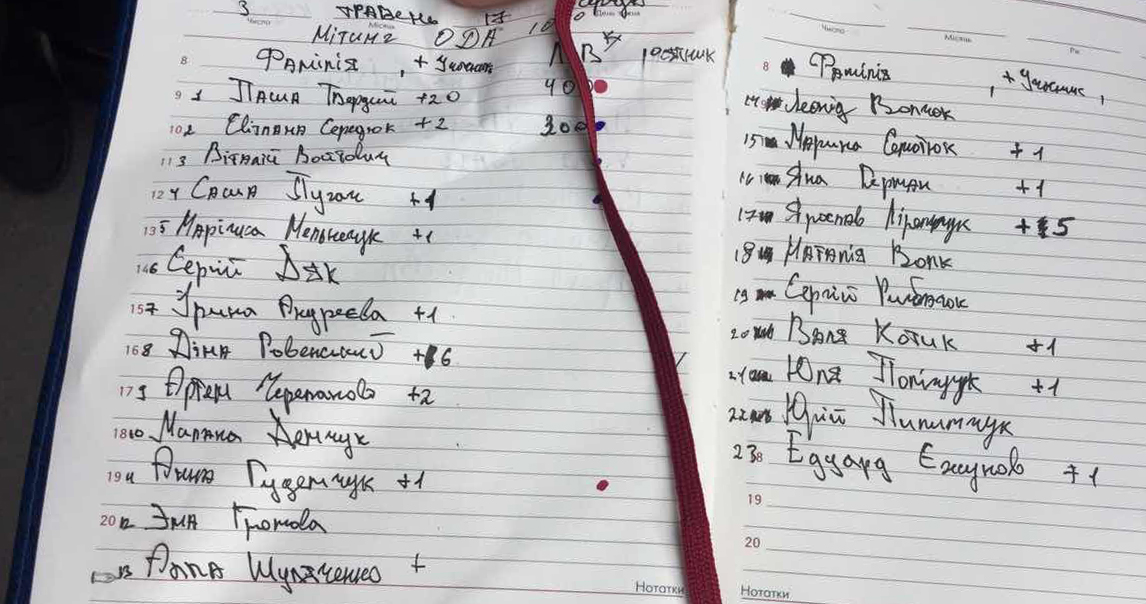 3 травень 17
Число
Мітинг ОДА
8 Фамілія , + Учасник
9 1 Паша Твердий +20 400
10 2 Світлана Середюк +2 300
11 3 Віталій Войтович
12 4 Саша Пугач +1
13 5 Маріуса Мельничук +1
14 6 Сергій Дяк
15 7 Ірина Андреєва +1
16 8 Діна Ровенський +6
17 9 Артем Черепанова +2
18 10 Маляна Демчук
19 11 Анна Гудемчук +1
20 12 Эма Громова
13 Алла Шуляченко +
Нотатки
Число Місяць Рік
8 Фамілія , + Учасник ,
14 Леонід Волчок
15 Марина Семотюк +1
16 Яна Герман +1
17 Ярослав Лірончук +5
18 Наталія Волк
19 Сергій Рибачок
20 Валя Котик +1
21 Юля Поліщук +1
22 Юрій Пилипчук
23 Едуард Єжунов +1
19
20
Нотатки